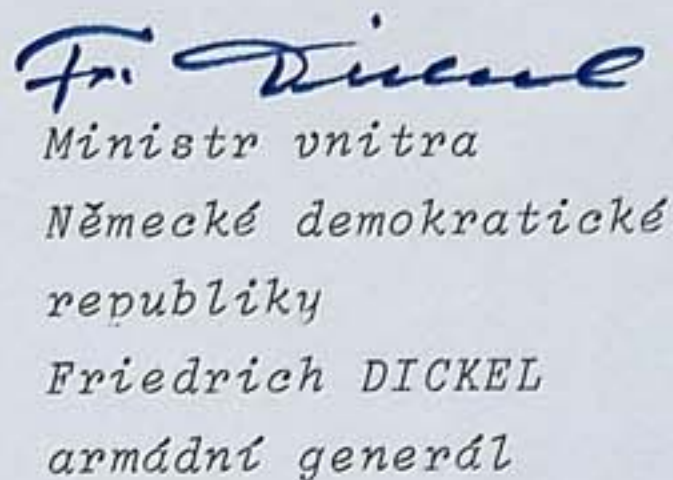 Fr. Dickel
Ministr vnitra
Německé demokratické
republiky
Friedrich DICKEL
armádní generál